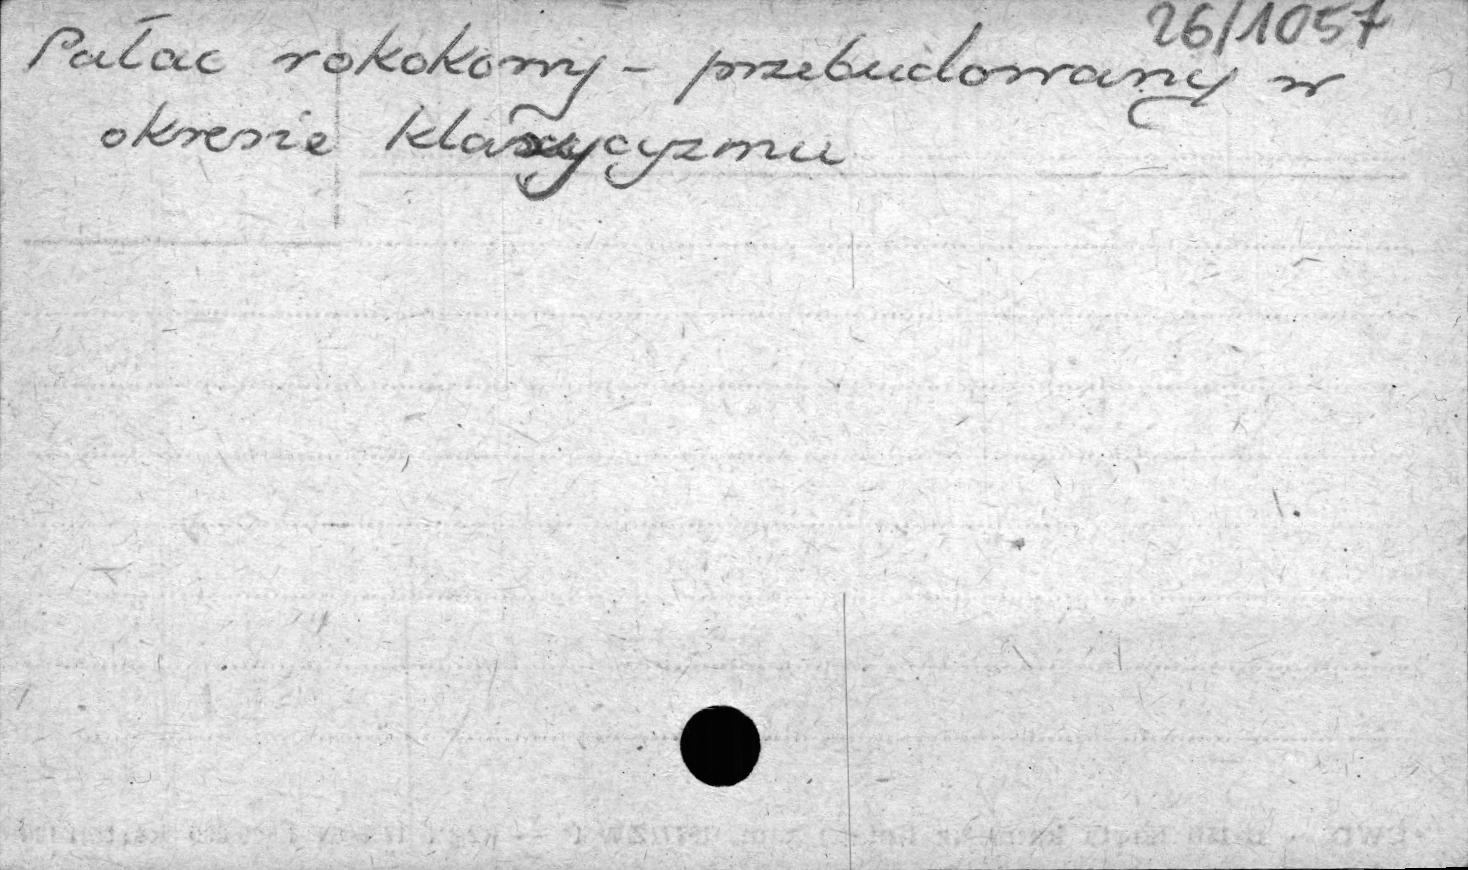 26/1057
Pałac rokokowy – przebudowany w
okresie klasycyzmu